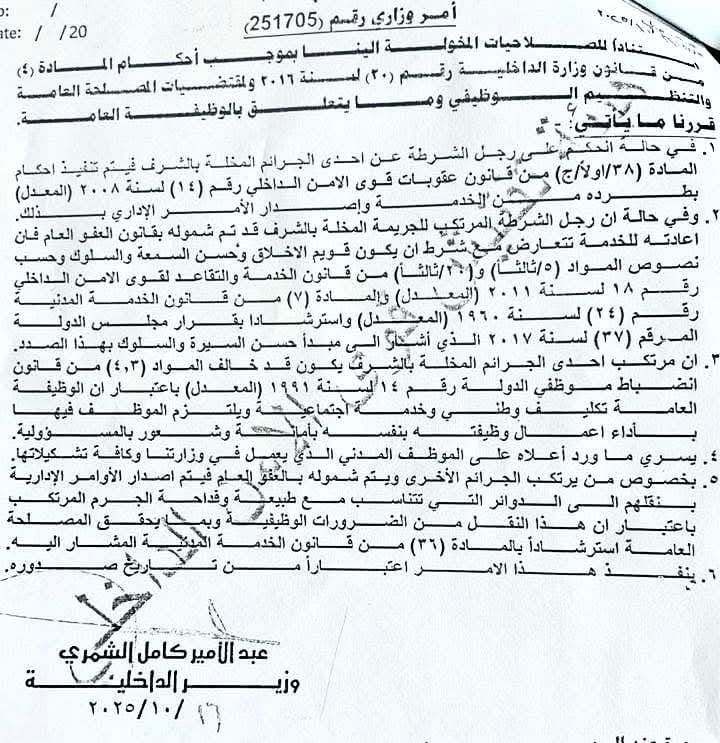 No: /
Date: / /20
أمر وزاري رقم (251705)
استناداً للصلاحيات المخولة الينا بموجب أحكام المادة (٤)
من قانون وزارة الداخلية رقم (٢٠) لسنة ٢٠١٦ ولمقتضيات المصلحة العامة
والتنظيم الوظيفي وما يتعلق بالوظيفة العامة.
قررنا ما يأتي:-
١. في حالة الحكم على رجل الشرطة عن احدى الجرائم المخلة بالشرف فيتم تنفيذ احكام
المادة (٣٨/اولاً/ج) من قانون عقوبات قوى الامن الداخلي رقم (١٤) لسنة ٢٠٠٨ (المعدل)
بطرده من الخدمة وإصدار الأمر الإداري بذلك.
٢. وفي حالة ان رجل الشرطة المرتكب للجريمة المخلة بالشرف قد تم شموله بقانون العفو العام فان
اعادته للخدمة تتعارض مع شرط ان يكون قويم الاخلاق وحسن السمعة والسلوك وحسب
نصوص المواد (٥/ثالثاً) و(٢٠/ثالثاً) من قانون الخدمة والتقاعد لقوى الامن الداخلي
رقم ١٨ لسنة ٢٠١١ (المعدل) والمادة (٧) من قانون الخدمة المدنية
رقم (٢٤) لسنة ١٩٦٠ (المعدل) واسترشادا بقرار مجلس الدولة
المرقم (٣٧) لسنة ٢٠١٧ الذي أشار الى مبدأ حسن السيرة والسلوك بهذا الصدد.
٣. ان مرتكب احدى الجرائم المخلة بالشرف يكون قد خالف المواد (٤،٣) من قانون
انضباط موظفي الدولة رقم ١٤ لسنة ١٩٩١ (المعدل) باعتبار ان الوظيفة
العامة تكليف وطني وخدمة اجتماعية ويلتزم الموظف فيها
بأداء اعمال وظيفته بنفسه بأمانة وشعور بالمسؤولية.
٤. يسري ما ورد أعلاه على الموظف المدني الذي يعمل في وزارتنا وكافة تشكيلاتها.
٥. بخصوص من يرتكب الجرائم الأخرى ويتم شموله بالعفو العام فيتم اصدار الأوامر الإدارية
بنقلهم الى الدوائر التي تتناسب مع طبيعة وفداحة الجرم المرتكب
باعتبار ان هذا النقل من الضرورات الوظيفية وبما يحقق المصلحة
العامة استرشاداً بالمادة (٣٦) من قانون الخدمة المدنية المشار اليه.
٦. ينفذ هذا الامر اعتباراً من تاريخ صدوره.
عبد الأمير كامل الشمري
وزير الداخلية
١٦/١٠/٢٠٢٥